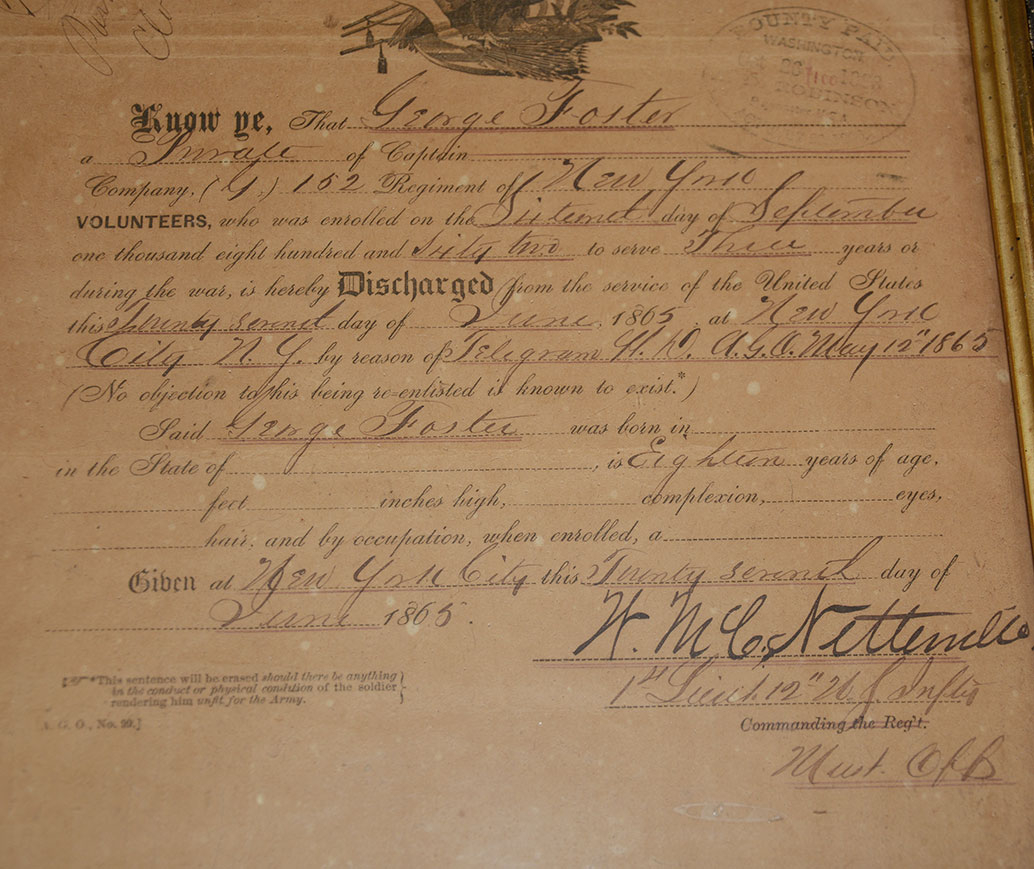 BOUNTY PAID
WASHINGTON
ROBINSON
Know ye, That George Foster
a Private of Captain
Company, (G,) 152 Regiment of New York
VOLUNTEERS, who was enrolled on the Sixteenth day of September
one thousand eight hundred and Sixty two to serve Three years or
during the war, is hereby Discharged from the service of the United States
this Twenty seventh day of June, 1865, at New York
City N. Y. by reason of Telegram W. D. A.G.O. May 12" 1865
(No objection to his being re-enlisted is known to exist.*)
Said George Foster was born in
in the State of , is Eighteen years of age,
feet inches high, complexion, eyes,
hair, and by occupation, when enrolled, a
Given at New York City this Twenty seventh day of
June 1865.
W. McC. Netterville
1st Lieut. 12" U. S. Infty
*This sentence will be erased should there be anything
in the conduct or physical condition of the soldier
rendering him unfit for the Army.
A. G. O., No. 99.]
Commanding the Reg't.
Must. Off